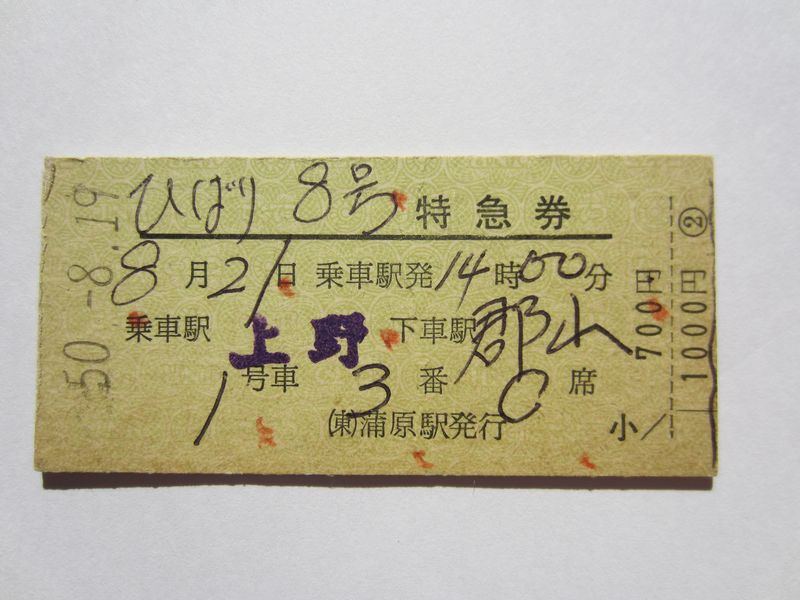 50.-8.19
ひばり 8号 特急券
8月21日 乗車駅発14時00分
乗車駅 上野 下車駅 郡山
1号車 3番 C席
(東)蒲原駅発行 小
700円
1000円 ②